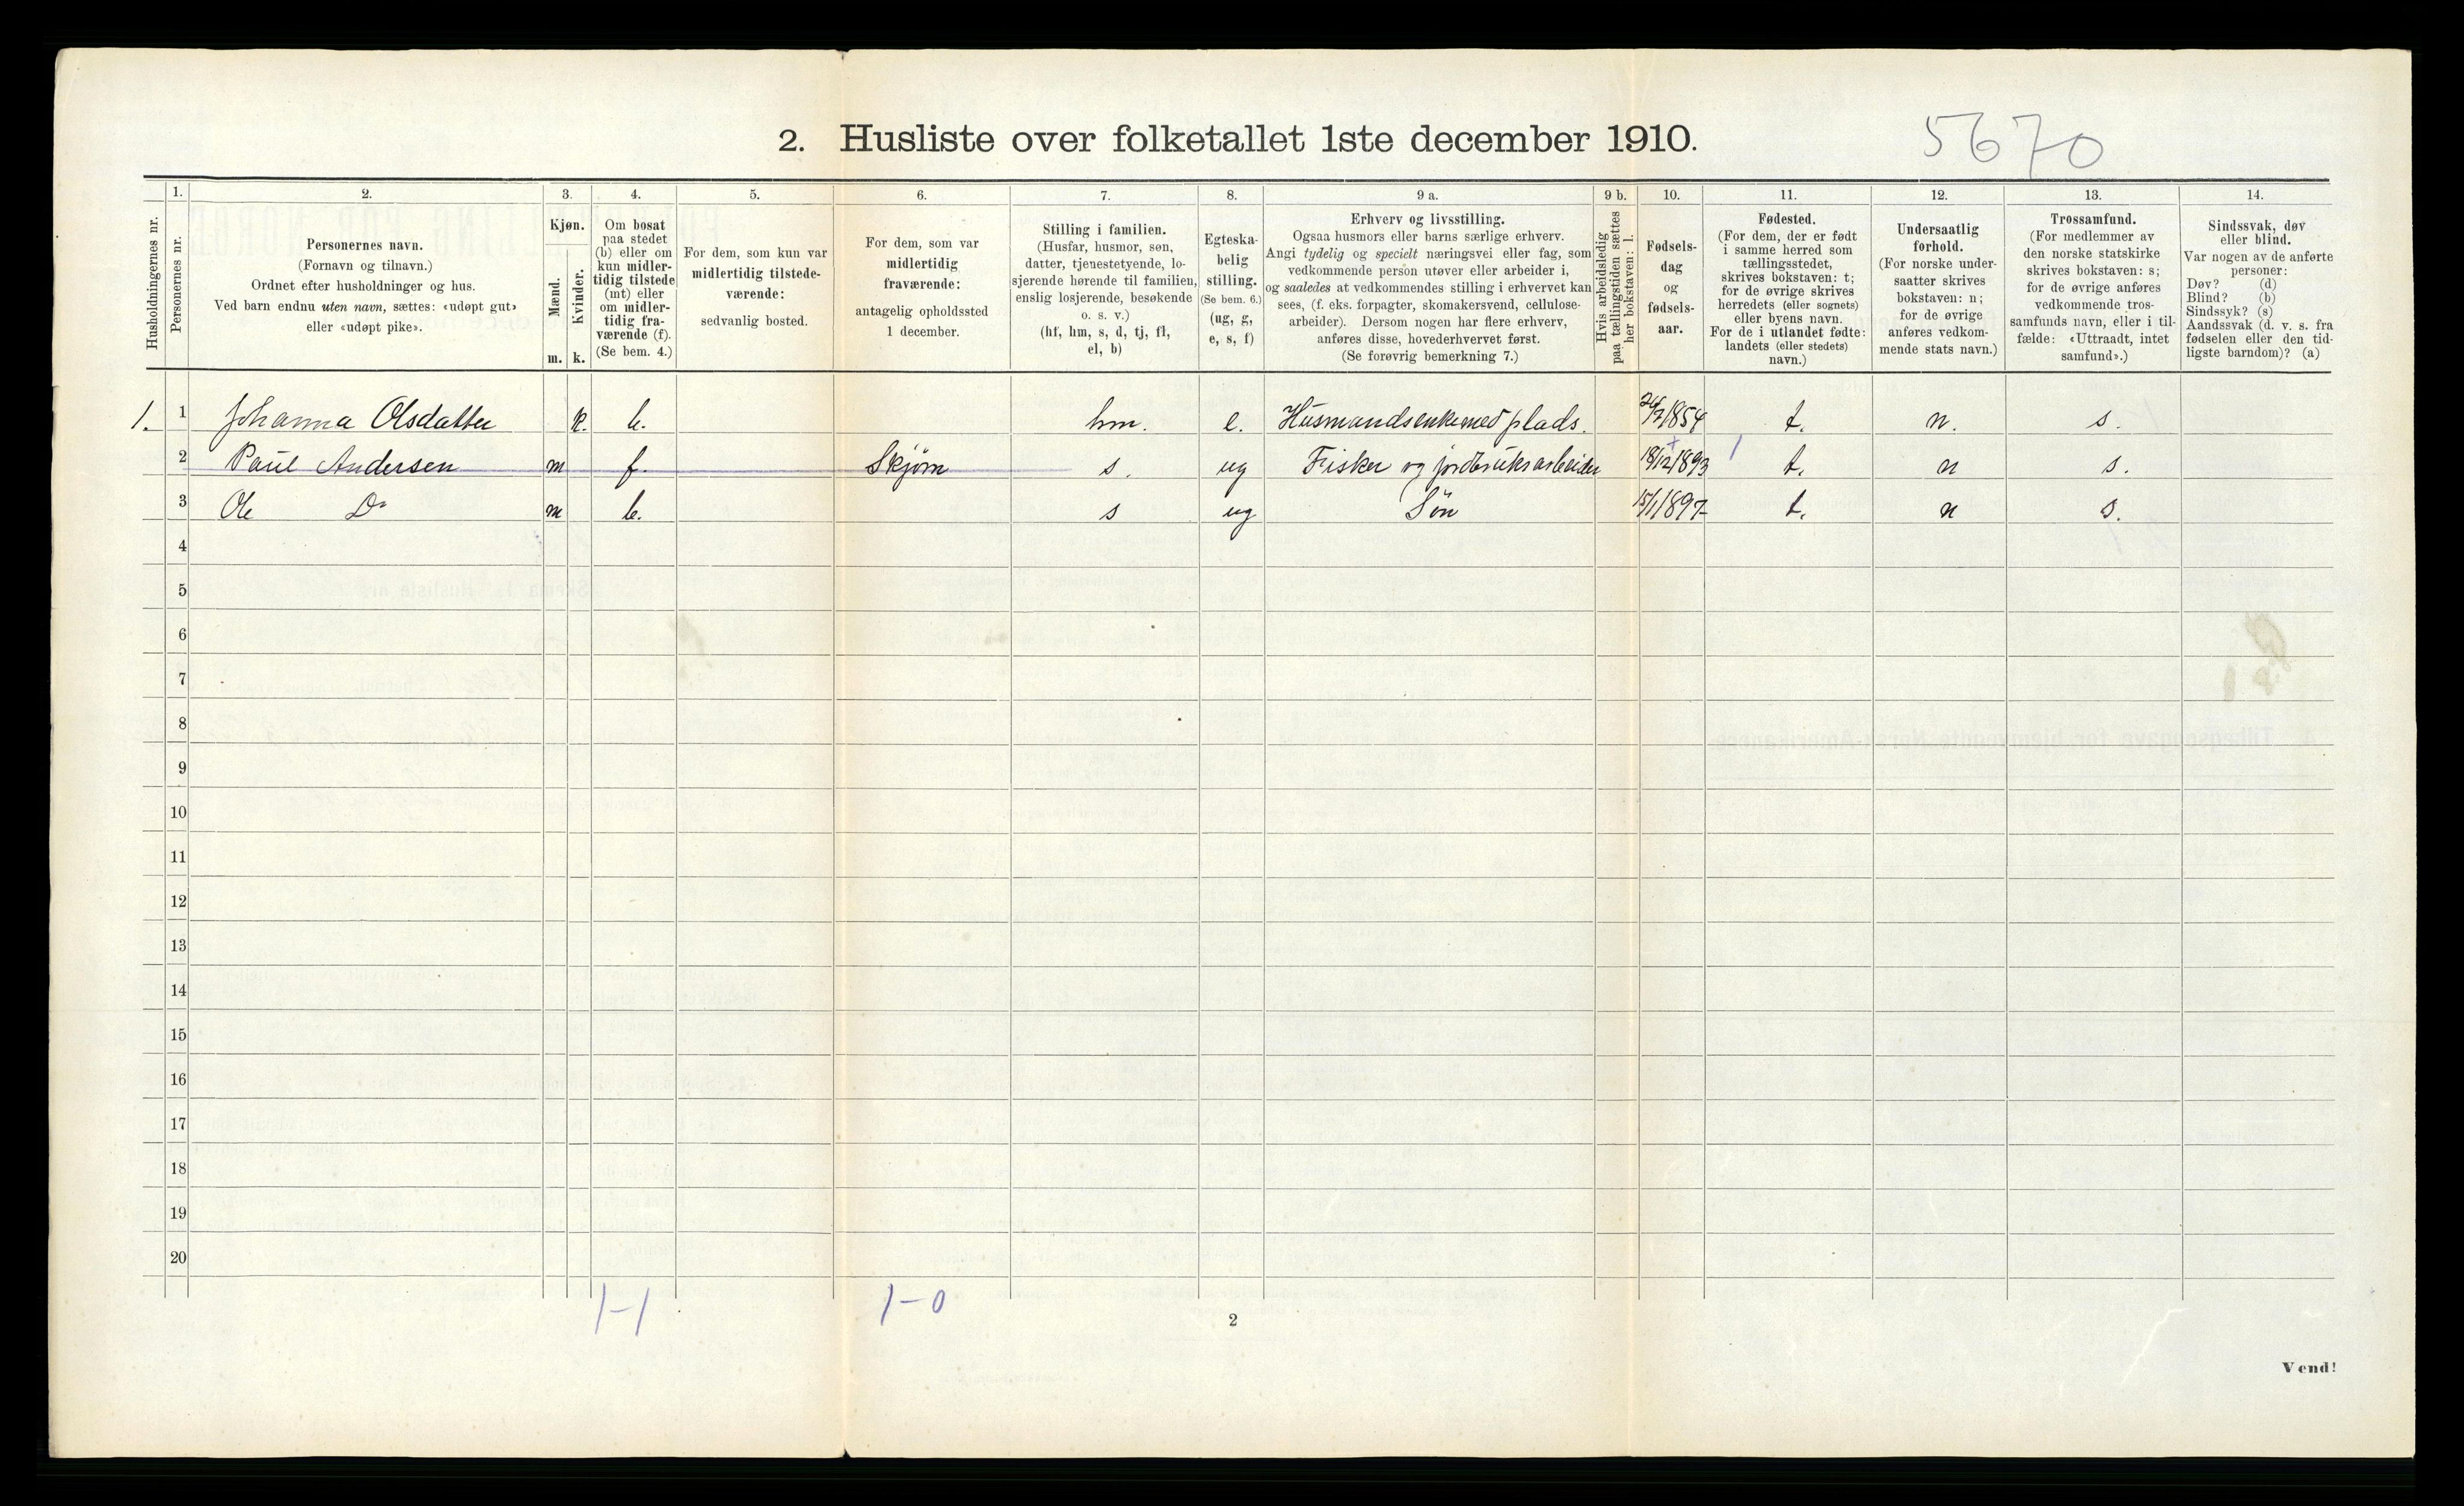 2. Husliste over folketallet 1ste december 1910.
5670
Husholdningernes nr.
1.
Personernes nr.
2.
Personernes navn.
(Fornavn og tilnavn.)
Ordnet efter husholdninger og hus.
Ved barn endnu uten navn, sættes: «udøpt gut»
eller «udøpt pike».
3.
Kjøn.
Mænd.
Kvinder.
m. k.
4.
Om bosat
paa stedet
(b) eller om
kun midler-
tidig tilstede
(mt) eller
om midler-
tidig fra-
værende (f).
(Se bem. 4.)
5.
For dem, som kun var
midlertidig tilstede-
værende:
sedvanlig bosted.
6.
For dem, som var
midlertidig
fraværende:
antagelig opholdssted
1 december.
7.
Stilling i familien.
(Husfar, husmor, søn,
datter, tjenestetyende, lo-
sjerende hørende til familien,
enslig losjerende, besøkende
o. s. v.)
(hf, hm, s, d, tj, fl,
el, b)
8.
Egteska-
belig
stilling.
(Se bem. 6.)
(ug, g,
e, s, f)
9 a.
Erhverv og livsstilling.
Ogsaa husmors eller barns særlige erhverv.
Angi tydelig og specielt næringsvei eller fag, som
vedkommende person utøver eller arbeider i,
og saaledes at vedkommendes stilling i erhvervet kan
sees, (f. eks. forpagter, skomakersvend, cellulose-
arbeider). Dersom nogen har flere erhverv,
anføres disse, hovederhvervet først.
(Se forøvrig bemerkning 7.)
9 b.
Hvis arbeidsledig
paa tællingstiden sættes
her bokstaven: l.
10.
Fødsels-
dag
og
fødsels-
aar.
11.
Fødested.
(For dem, der er født
i samme herred som
tællingsstedet,
skrives bokstaven: t;
for de øvrige skrives
herredets (eller sognets)
eller byens navn.
For de i utlandet fødte:
landets (eller stedets)
navn.)
12.
Undersaatlig
forhold.
(For norske under-
saatter skrives
bokstaven: n;
for de øvrige
anføres vedkom-
mende stats navn.)
13.
Trossamfund.
(For medlemmer av
den norske statskirke
skrives bokstaven: s;
for de øvrige anføres
vedkommende tros-
samfunds navn, eller i til-
fælde: «Uttraadt, intet
samfund».)
14.
Sindssvak, døv
eller blind.
Var nogen av de anførte
personer:
Døv? (d)
Blind? (b)
Sindssyk? (s)
Aandssvak (d. v. s. fra
fødselen eller den tid-
ligste barndom)? (a)
1. 1 Johanna Olsdatter k. b. hm. e. Husmandsenke med plads. 24/7 1854 t. n. s.
2 Paul Andersen m f. Skjørn s. ug Fisker og jordbruksarbeider 18/12 1893 t. n s.
3 Ole Do m b. s ug Søn 15/1 1897 t. n s.
4
5
6
7
8
9
10
11
12
13
14
15
16
17
18
19
20
1-1 1-0
2
Vend!